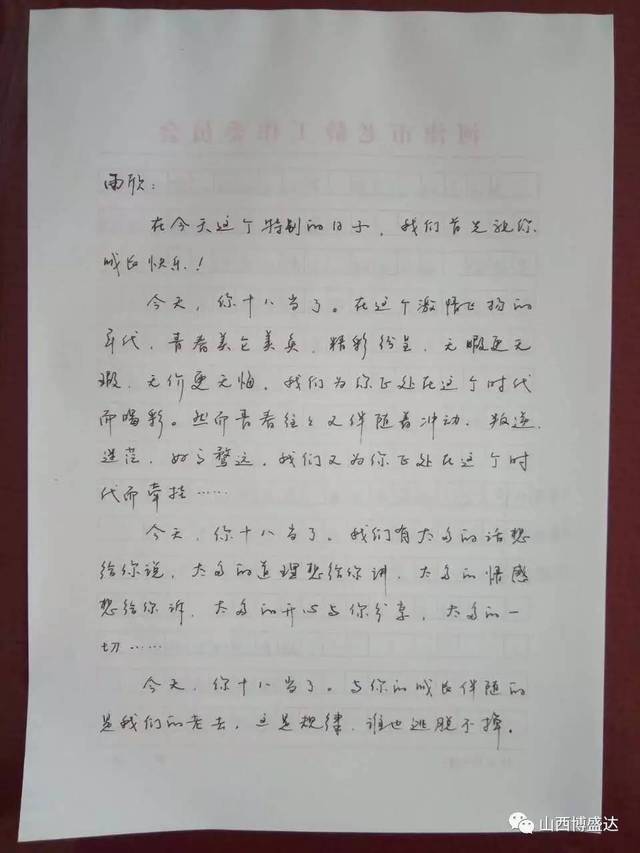 河津市老龄工作委员会
雨欣：
在今天这个特别的日子，我们首先祝你
成长快乐！
今天，你十八岁了。在这个激情飞扬的
年代，青春美仑美奂，精彩纷呈，无暇更无
瑕，无价更无悔，我们为你正处在这个时代
而喝彩。然而青春往往又伴随着冲动、叛逆、
迷茫、好高骛远，我们又为你正处在这个时
代而牵挂……
今天，你十八岁了。我们有太多的话想
给你说，太多的道理想给你讲，太多的情感
想给你诉，太多的开心与你分享，太多的一
切……
今天，你十八岁了。与你的成长伴随的
是我们的老去，这是规律，谁也逃脱不掉。
山西博盛达